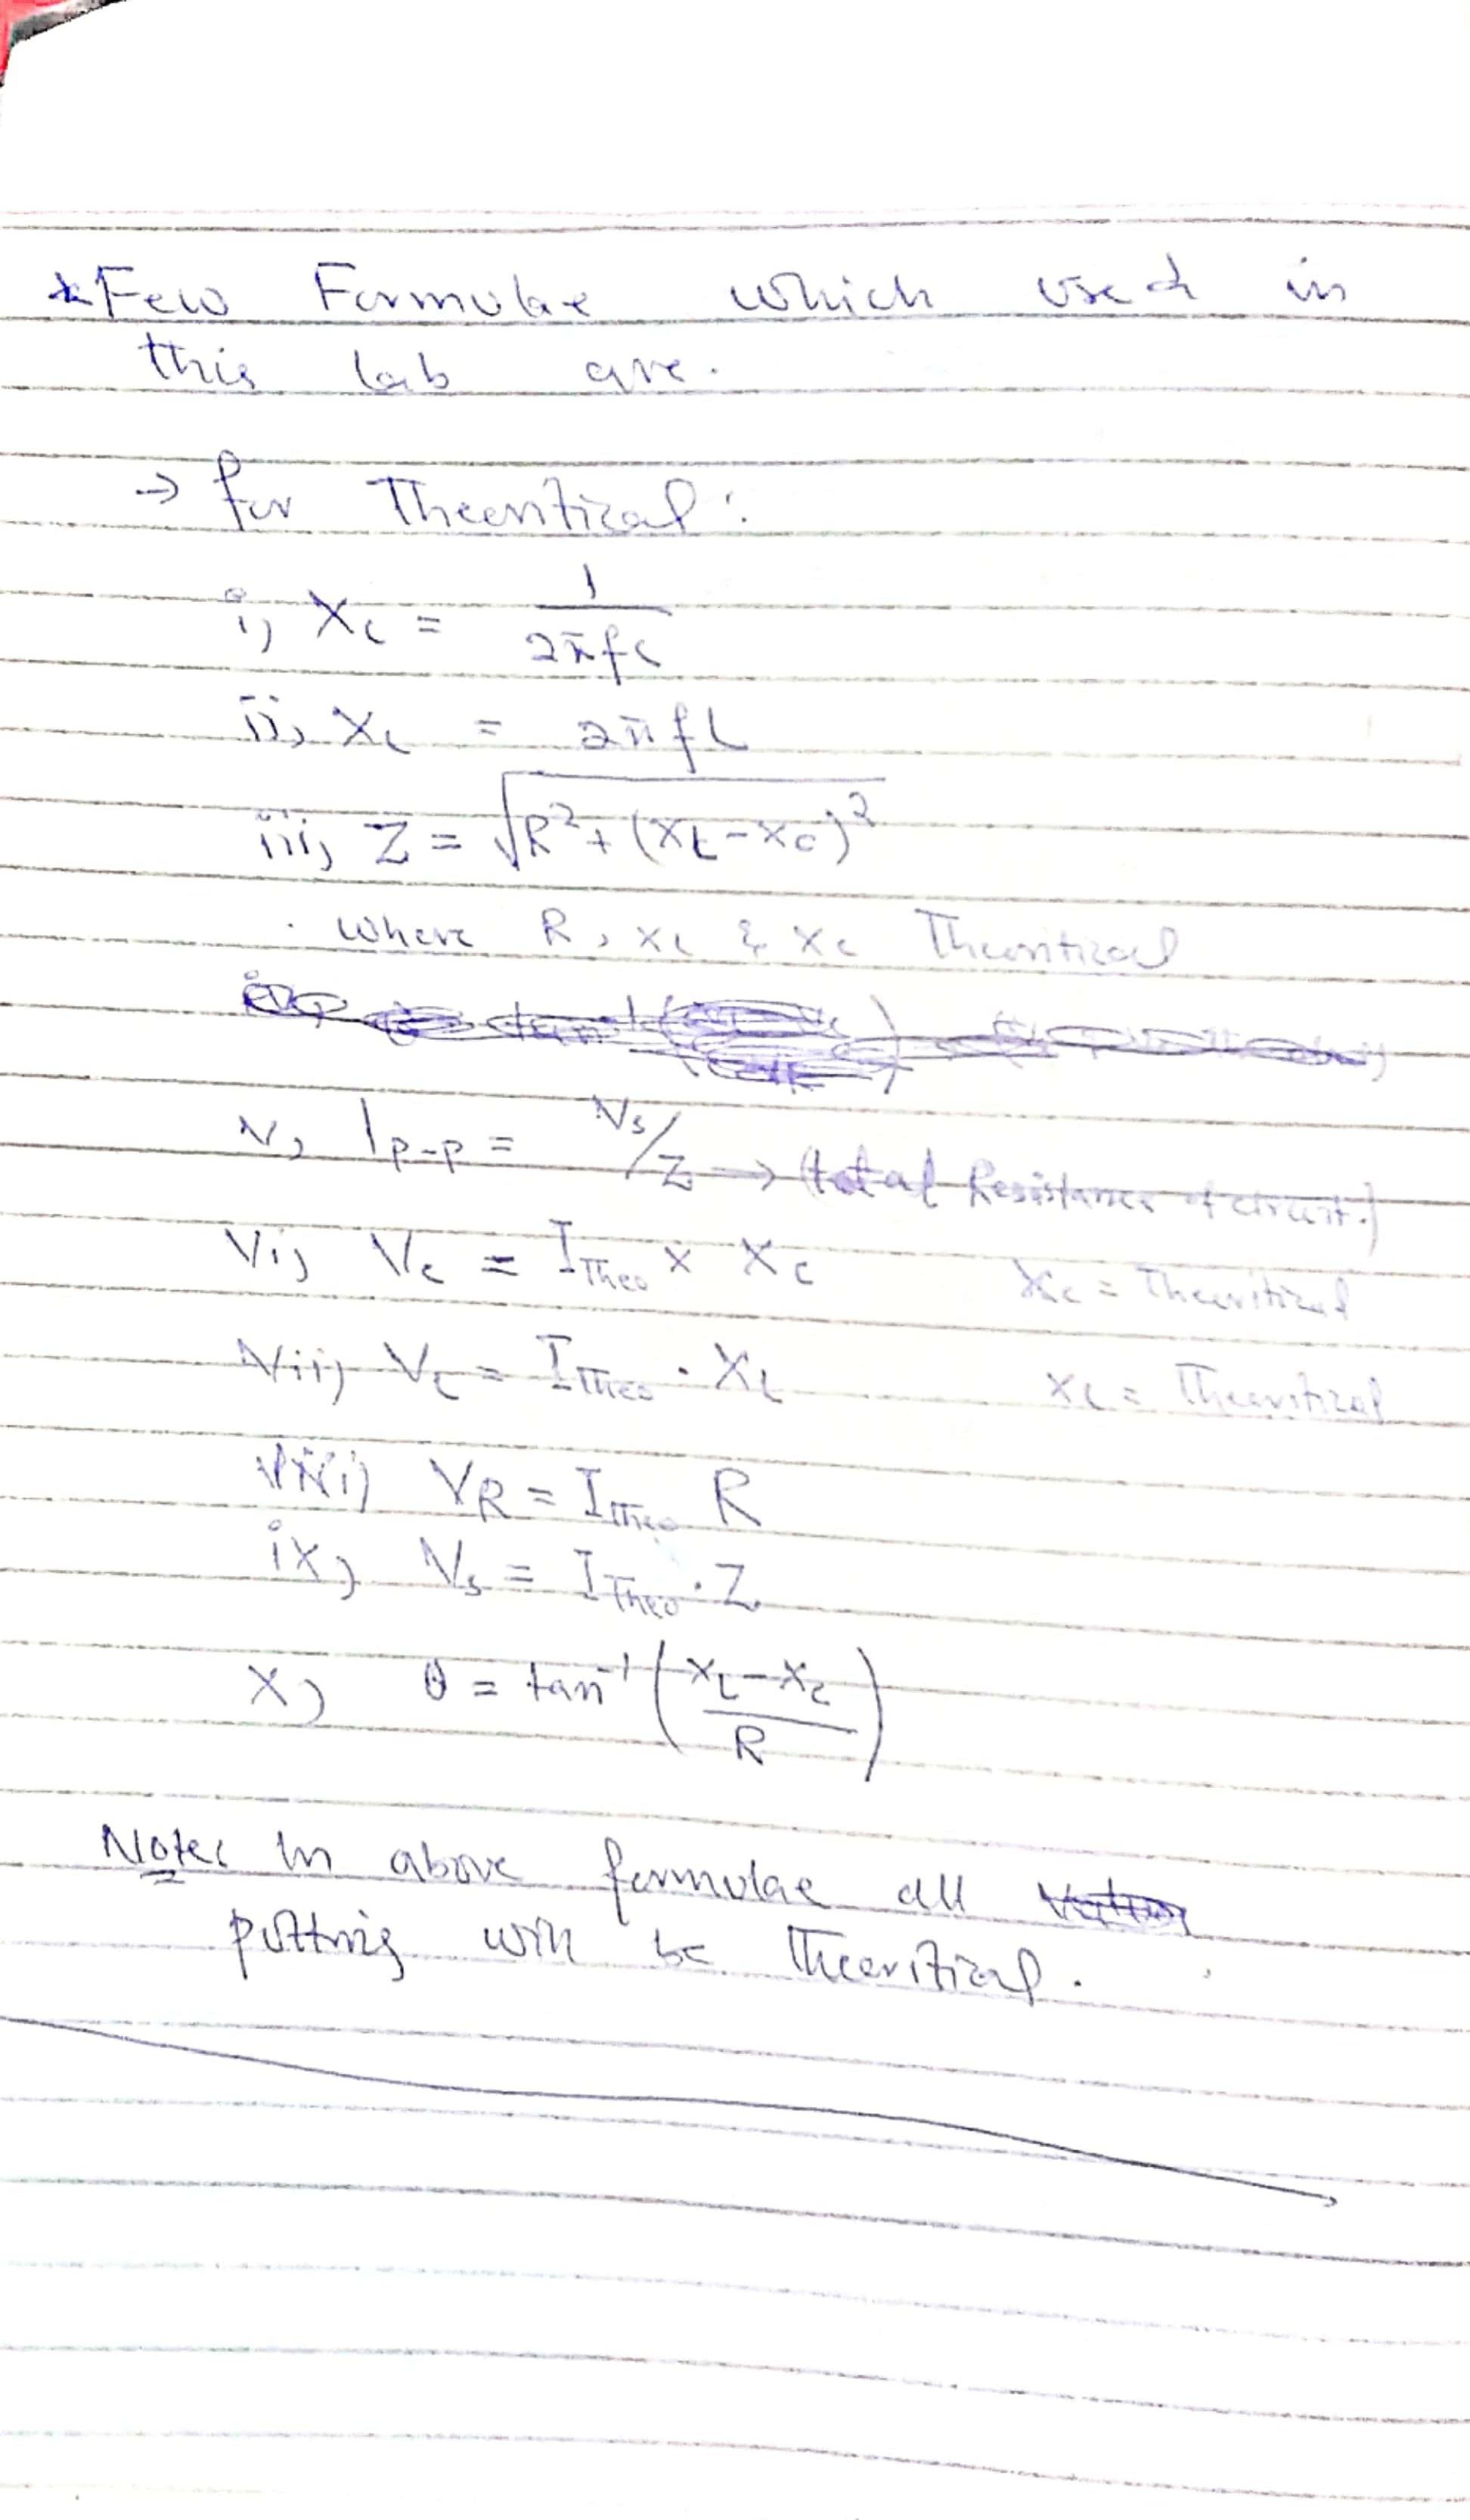 * Few Formulae which used in
this lab are.
→ for Theoritical:
i, Xc = 1/2πfc
ii, XL = 2πfL
iii, Z = √R²+(XL-Xc)²
where R, XL & Xc Theoritical
v, Ip-p = Vs/Z → (total Resistance of circuit.)
Vi, Vc = ITheo x Xc Xc = Theoritical
Vii) VL = ITheo . XL XL = Theoritical
viii) VR = ITheo R
ix, Vs = ITheo . Z
X, θ = tan⁻¹ (XL-Xc/R)
Note: In above formulae all
putting will be Theoritical.